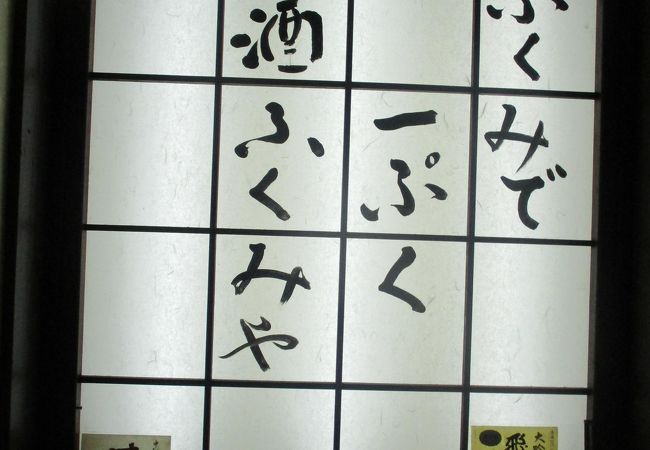 ふくみで
一ぷく
酒ふくみや